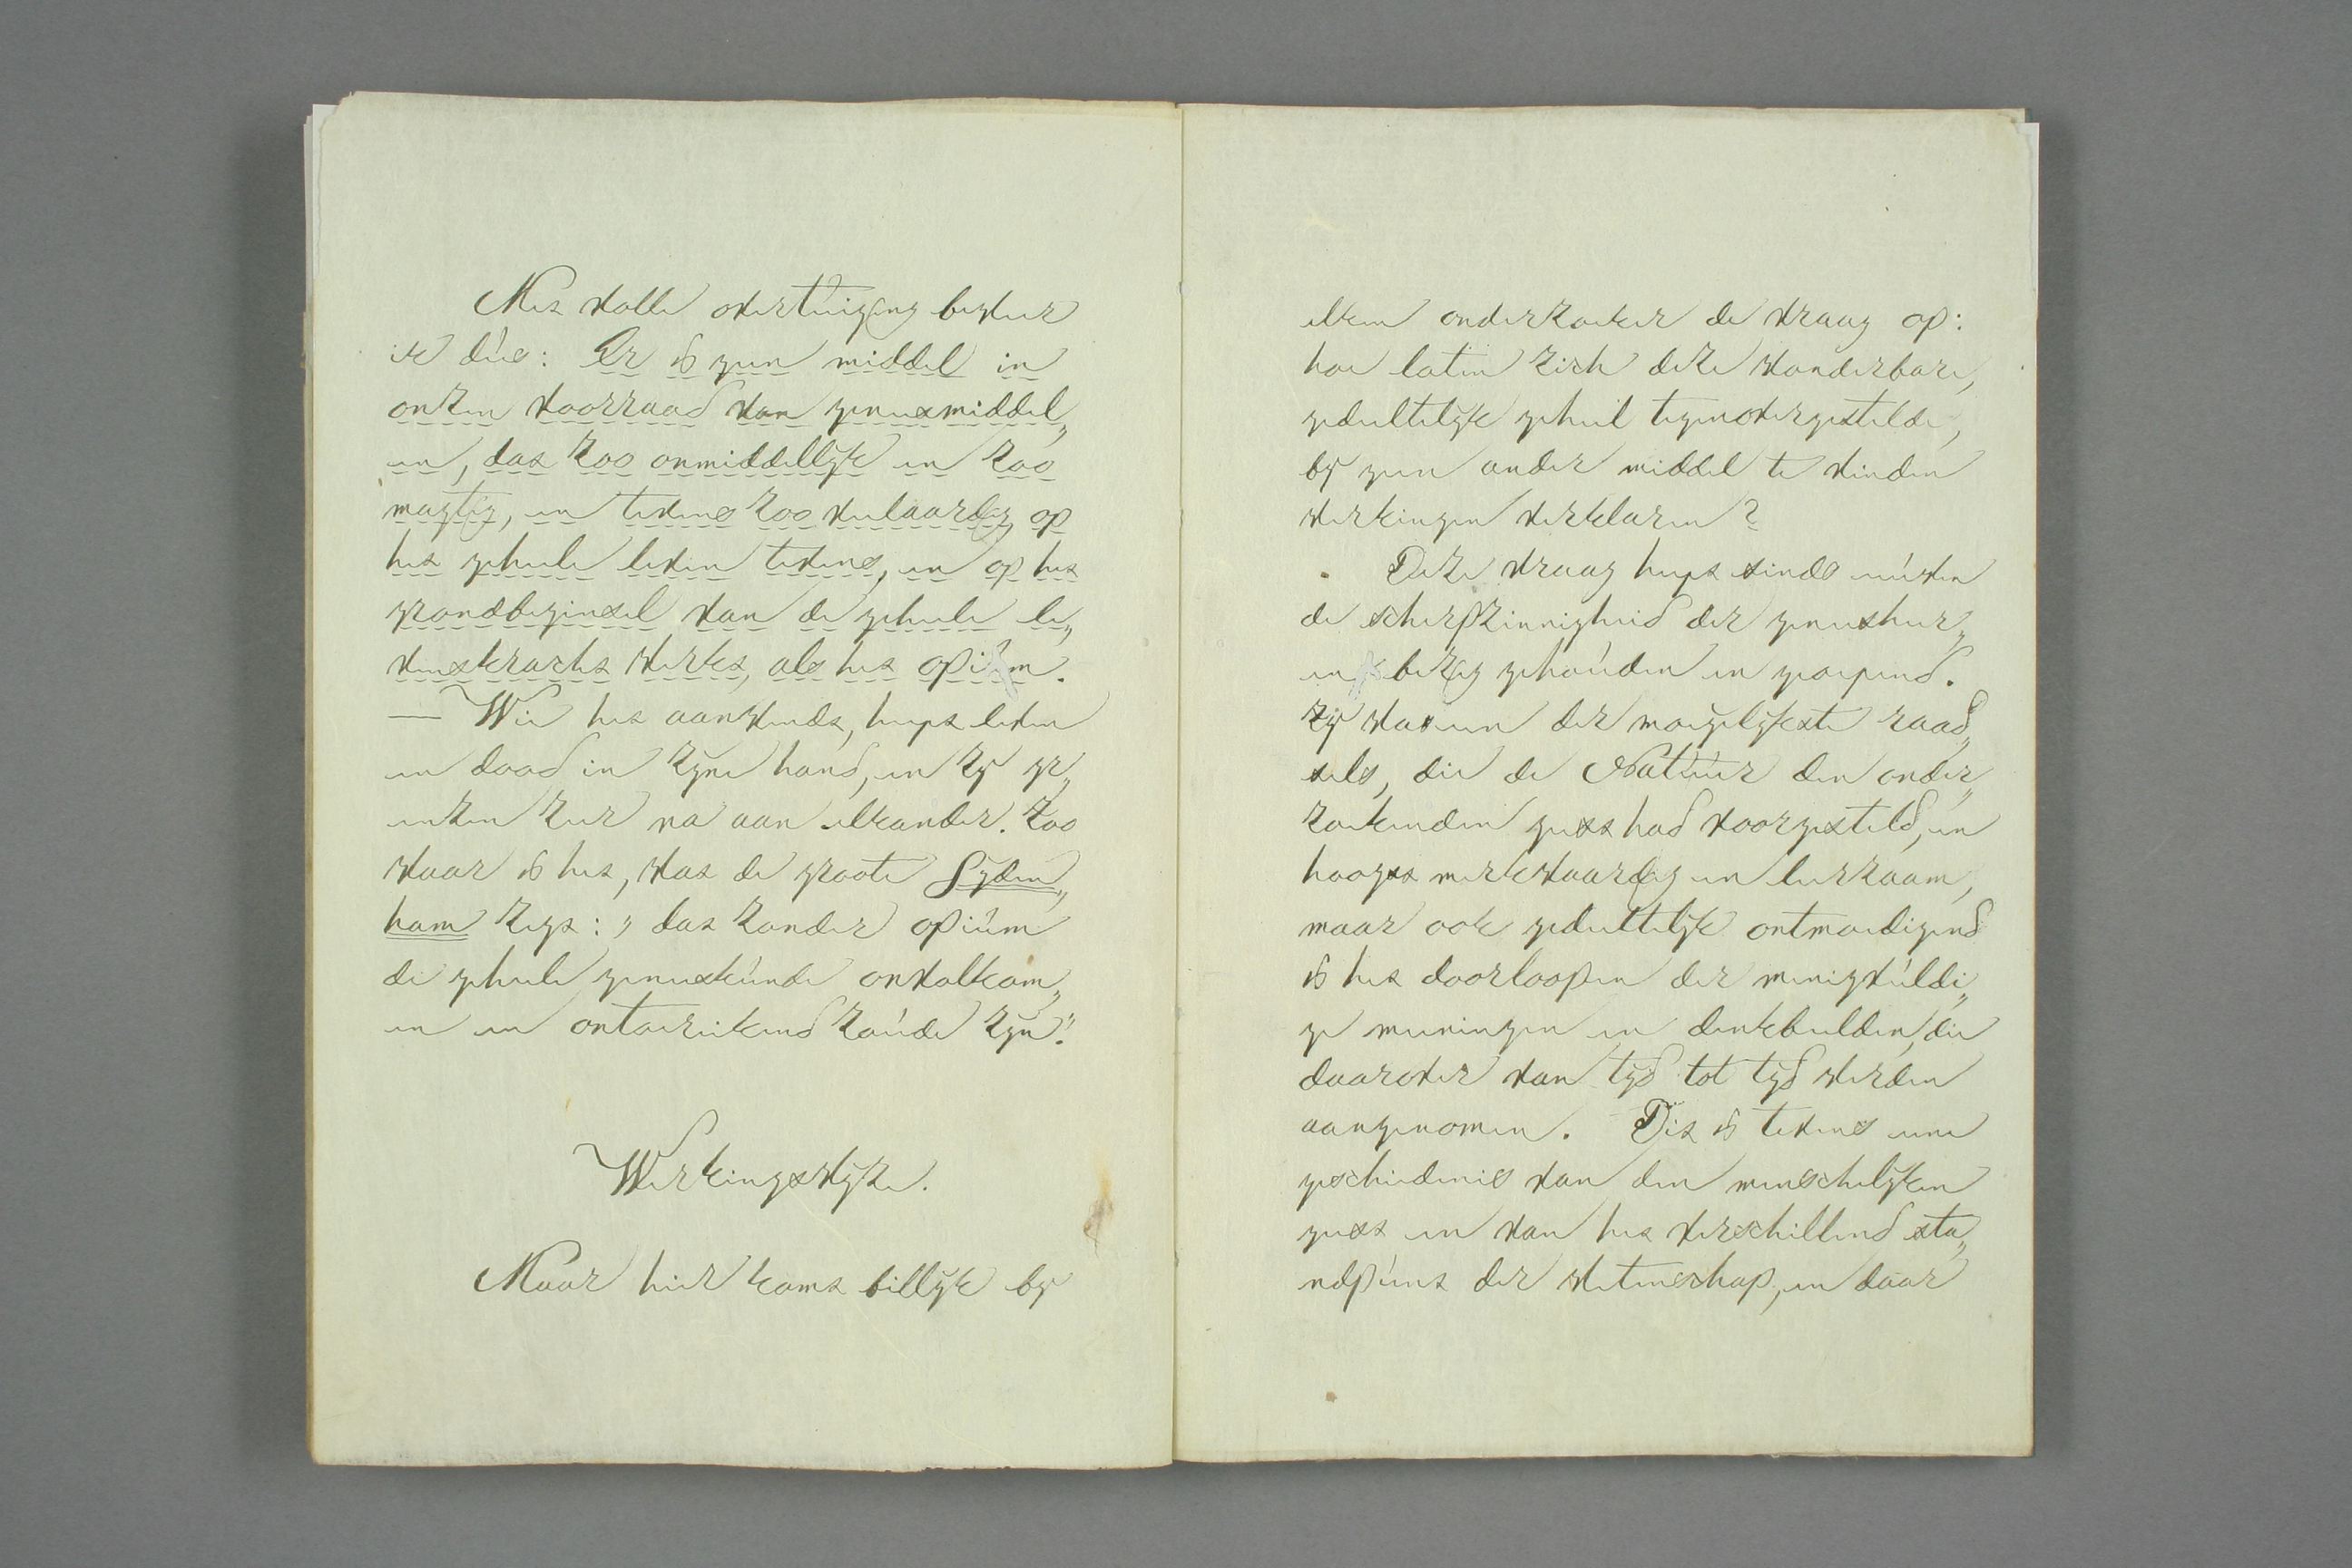 Met volle overtuiging beweer
ik dus: Er is geen middel in
onzen voorraad van geneesmiddel„
en, dat zoo onmiddellyk en zoo
magtig, en tevens zoo veelaardig op
het geheele leven tevens, en op het
grondbeginsel van de geheele le„
venskracht werkt, als het opium.
— Wie het aanwendt, heeft leven
en dood in zyne hand, en zy gr„
enzen zeer na aan elkander. Zoo
waar is het, wat de groote Syden„
ham zegt: „ dat zonder opium
de geheele geneeskunde onvolkom„
en en ontoereikend zoude zyn."
Werkingswyze.
Maar hier komt billyk by
elken onderzoeker de vraag op:
hoe laten zich deze wonderbare,
gedeeltelyk geheel tegenovergestelde,
by geen ander middel te vinden
werkingen verklaren?
Deze vraag heeft sinds eeuwen
de scherpzinnigheid der geneesheer„
en bezig gehouden en geoefend.
Zy was een der moeyelykste raad„
sels, die de Natuur den onder„
zoekenden geest had voorgesteld, en
hoogst merkwaardig en leerzaam,
maar ook gedeeltelyk ontmoedigend
is het doorloopen der menigvuldi„
ge meeningen en denkbeelden, die
daarover van tyd tot tyd werden
aangenomen. Dit is tevens eene
geschiedenis van den menschelyken
geest en van het verschillend sta„
ndpunt der wetenschap, en daar